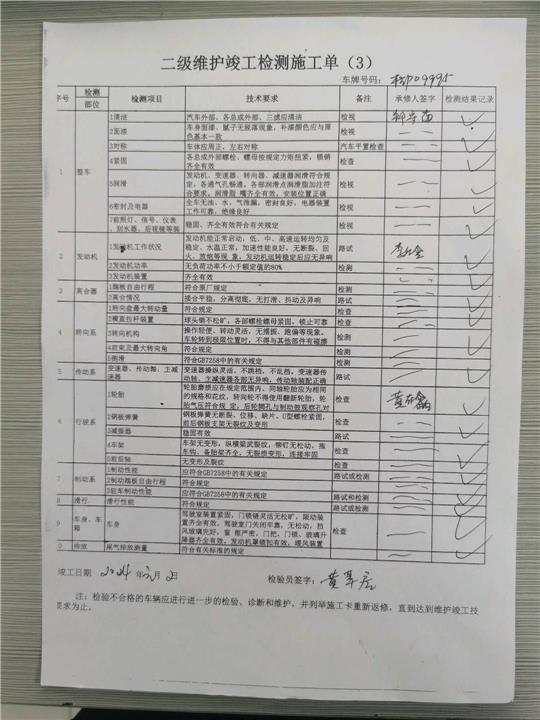 二级维护竣工检测施工单（3）
车牌号码：
序号 检测部位 检测项目 技术要求 备注 承修人签字 检测结果记录
1 整车
1清洁 汽车外部、各总成外部、三滤应清洁 检视
2面漆 车身面漆、腻子无脱落现象，补漆颜色应与原色基本一致 检视
3对称 车体应周正，左右对称 汽车平置检查
4紧固 各总成外部螺栓、螺母按规定力矩扭紧，锁销齐全有效 检查
5润滑 发动机、变速器、转向器、减速器润滑符合规定，各通气孔畅通，各部润滑点润滑脂加注符合要求，润滑脂 嘴齐全有效，安装位置正确 检视
6密封及电器 全车无油、水、气泄漏，密封良好，电器装置工作可靠，绝缘良好 检视
7前照灯、信号、仪表、刮水器、后视镜等装 稳固、齐全有效符合有关规定 检视
2 发动机
1发动机工作状况 发动机能正常启动，低、中、高速运转均匀及稳定、水温正常，加速性能良好，无断裂、回火、放炮等现 象，发动机运转稳定后应无异响 路试
2发动机功率 无负荷功率不小于额定值的80% 检测
3发动机装置 齐全有效
3 离合器
1踏板自由行程 符合原厂规定 检测
2离合情况 接合平稳，分离彻底，无打滑、抖动及异响 路试
4 转向系
1转向盘最大转动量 符合规定 检查
2横直拉杆装置 球头销不松旷，各部螺栓螺母紧固，锁止可靠 检查
3转向机构 操作轻便、转动灵活，无摆振、跑偏等现象，车轮转到极限位置时，不得与其他部件有碰擦 检测
4前束及最大转向角 符合规定 检测
5侧滑 符合GB7258中的有关规定 检测
5 传动系 变速器、传动轴、主减速器 变速器操纵灵活、不跳档、不乱档，变速器传动轴、主减速器各部无异响，传动轴装配正确 路试
6 行驶系
1轮胎 轮胎磨损应在规定范围内，同轴轮胎应为相同的规格和花纹，转向轮不得使用翻新轮胎，轮胎气压符合规 定，后轮辋孔与制动鼓观察孔对 检查
2钢板弹簧 钢板弹簧无断裂、位移、缺片、U型螺栓紧固，前后钢板支架无裂纹及变形 检查
3减振器 稳固有效 路试
4车架 车架无变形，纵横梁武裂纹，铆钉无松动，拖车钩、备胎架齐全，无裂损变形，连接牢固 检查
5前后轴 无变形及裂纹 检查
7 制动系
1制动性能 应符合GB7258中的有关规定 路试或检测
2制动踏板自由行程 符合规定 检测
3驻车制动性能 应符合GB7258中的有关规定 路试或检测
8 滑行 滑行性能 符合规定 路试和检测
9 车身、车箱 车身 驾驶室装置紧固，门锁链灵活无松旷，限动装置齐全有效，驾驶室门关闭牢靠，无松动，挡风玻璃完好，窗 框严密，门把、门锁、玻璃升降器齐全有效，发动机罩锁扣有效，暖风装置 检查
排放 尾气排放测量 符合有关标准的规定 检测
竣工日期 年 月 日 检验员签字：
注：检验不合格的车辆应进行进一步的检验、诊断和维护，并列举施工卡重新返修，直到达到维护竣工技
要求为止。